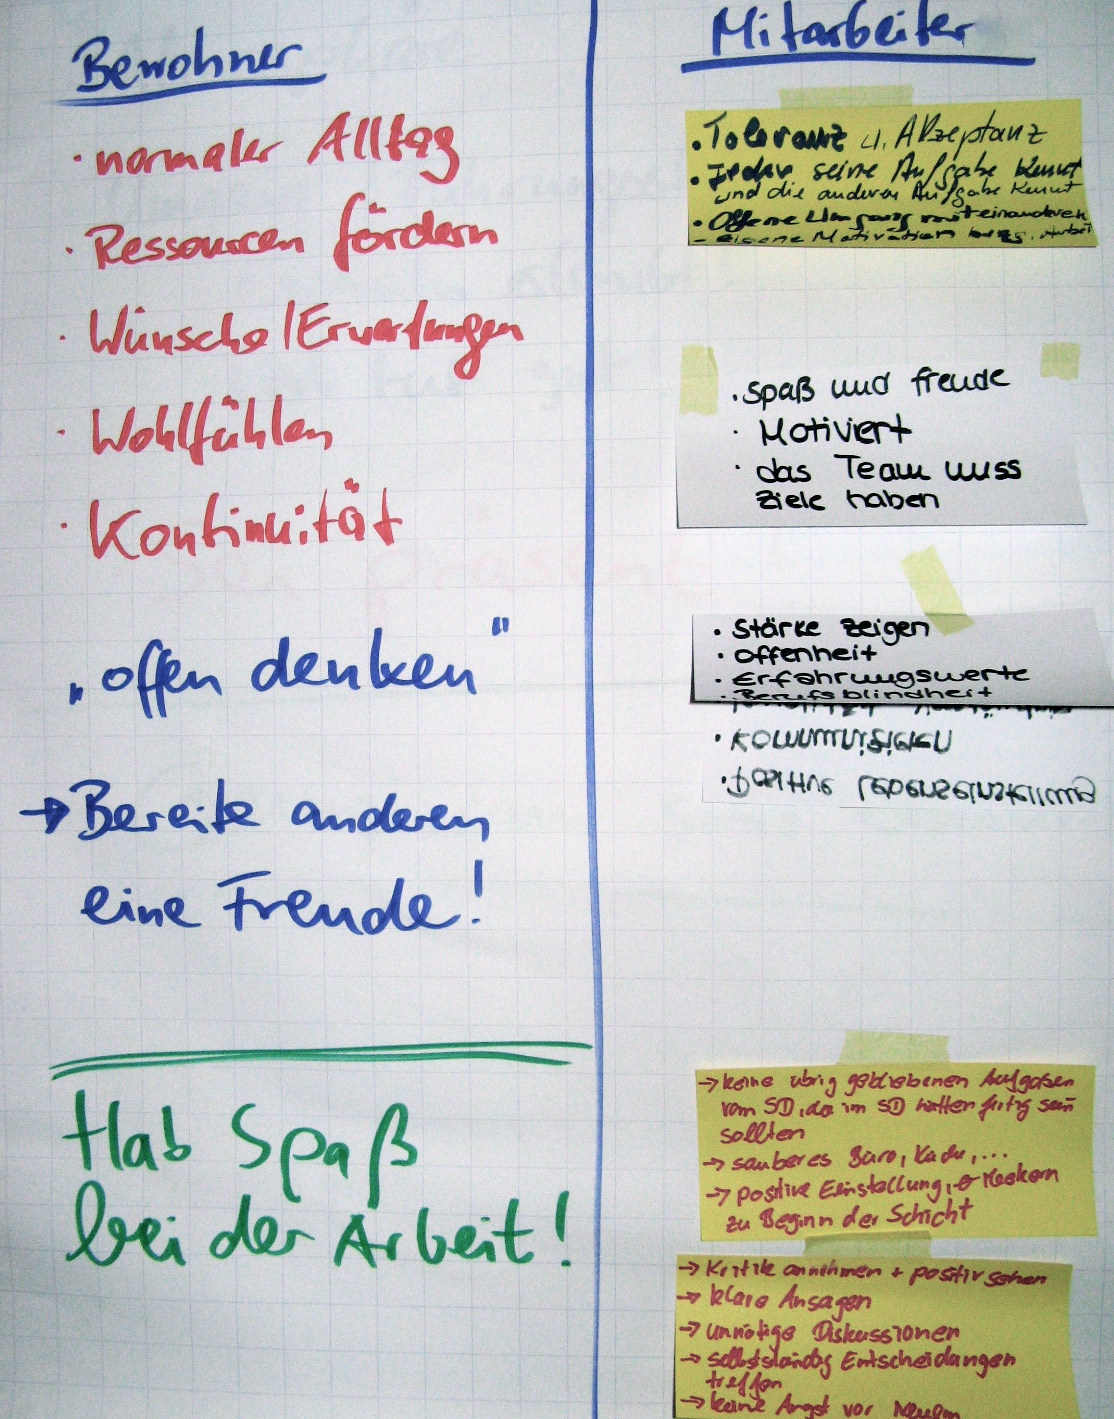 Bewohner
· normaler Alltag
· Ressourcen fördern
· Wünsche/Erwartungen
· Wohlfühlen
· Kontinuität
„offen denken"
→ Bereite anderen
eine Freude!
Hab Spaß
bei der Arbeit!
Mitarbeiter
· Toleranz u. Akzeptanz
· Jeder seine Aufgabe kennt
und die anderen Aufgabe kennt
· Offene Umgang miteinanderen
- eigene Motivation
· Spaß und freude
· Motiviert
· das Team muss
Ziele haben
· Stärke zeigen
· Offenheit
· Erfahrungswerte
· Berufsblindheit
→ keine übrig gebliebenen Aufgaben
vom SD, da im SD hätten fertig sein
sollten
→ sauberes Büro, Küche, ...
→ positive Einstellung, Meckern
zu Beginn der Schicht
→ Kritik annehmen + positiv sehen
→ klare Ansagen
→ unnötige Diskussionen
→ selbstständig Entscheidungen
treffen
→ keine Angst vor Neuem